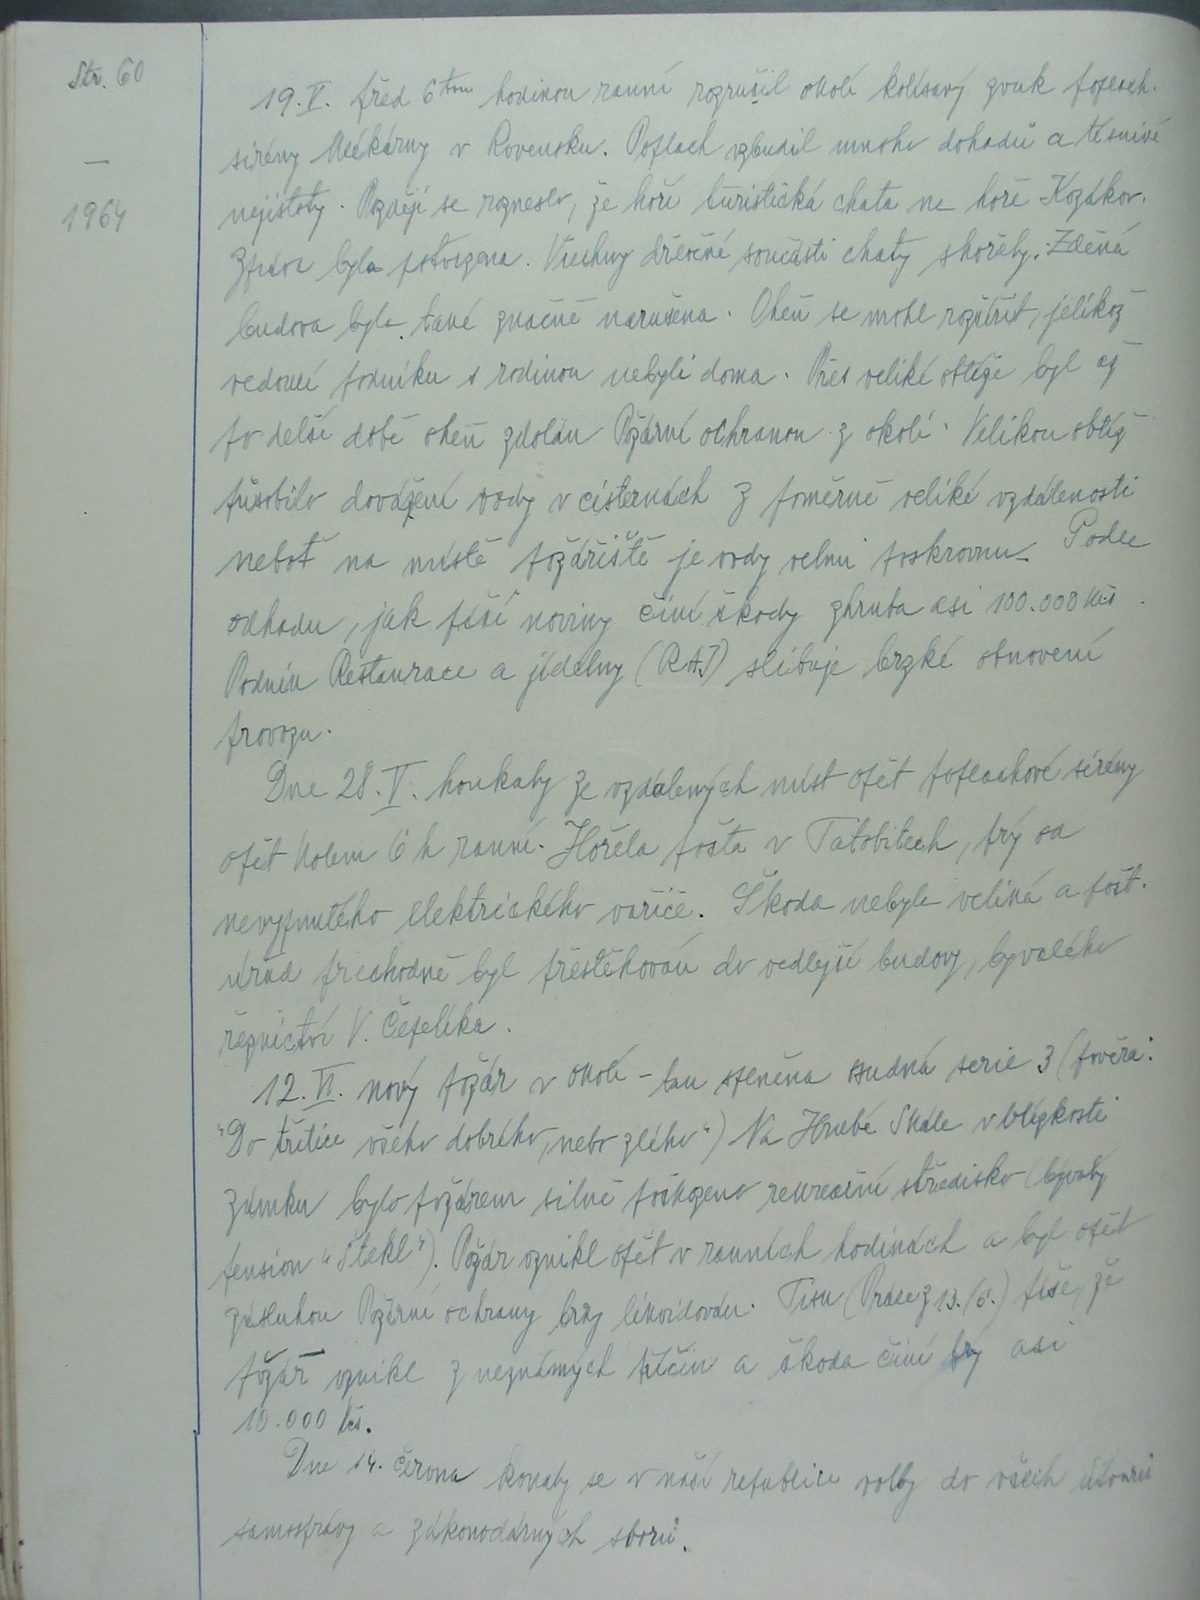 Str. 60
—
1964
19. V. před 6tou hodinou ranní rozrušil okolí kolísavý zvuk poplach.
sirény Mlékárny v Rovensku. Poplach vzbudil mnoho dohadů a tísnivé
nejistoty. Později se rozneslo, že hoří turistická chata na hoře Kozákov.
Zpráva byla potvrzena. Všechny dřevěné součásti chaty shořely. Zděná
budova byla také značně narušena. Oheň se mohl rozšířit, jelikož
vedoucí podniku s rodinou nebyli doma. Přes veliké obtíže byl až
po delší době oheň zdolán Požární ochranou z okolí. Velikou obtíž
působilo dovážení vody v cisternách z poměrně veliké vzdálenosti
neboť na místě požářiště je vody velmi poskrovnu. Podle
odhadu, jak píší noviny činí škody zhruba asi 100.000 Kčs.
Podnik Restaurace a jídelny (RAJ) slibuje brzké obnovení
provozu.
Dne 28. V. houkaly ze vzdálených míst opět poplachové sirény
opět kolem 6 h ranní. Hořela pošta v Tatobitech, prý od
nevypnutého elektrického vařiče. Škoda nebyla veliká a pošt.
úřad přechodně byl přestěhován do vedlejší budovy, bývalého
řeznictví V. Čepelíka.
12. VI. nový požár v okolí – tau splněna osudná serie 3 (pověra:
"Do třetice všeho dobrého, nebo zlého") Na Hrubé Skále v blízkosti
zámku bylo požárem silně poškozeno rekreační středisko (bývalý
pension "Štekl"). Požár vznikl opět v ranních hodinách a byl opět
zásluhou Požární ochrany brzy likvidován. Tisk (Práce z 13./6.) píše, že
požár vznikl z neznámých příčin a škoda činí prý asi
10.000 Kčs.
Dne 14. června konaly se v naší republice volby do všech útvarů
samosprávy a zákonodárných sborů.